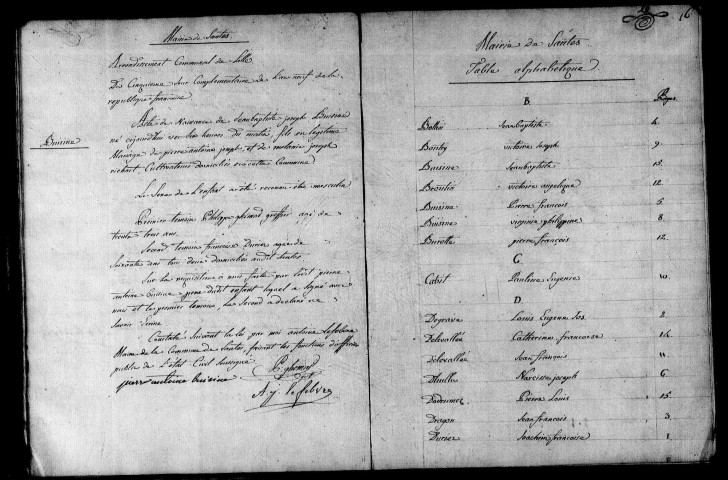 Mairie de Santes
Arrondissement Communal de Lille
Du Cinquieme Jour Complementaire de l'an neuf de la
republique francaise
Buisine
Acte de Naissance de Jeanbaptiste joseph Buisine
né cejourdhuy sur les heures du matin, fils en legitime
Mariage de pierre antoine joseph et de melanie joseph
Cultivateurs domiciliés en cette Commune
Le Sexe de l'enfant a été reconnu être masculin
Premier temoin Philippe ghemart greffier agé de
trente trois ans
Second temoin francois Durier agé de
Soixante ans tous deux domiciliés audit Santes
Sur la requisition à nous faite par ledit pierre
antoine Buisine pere dudit enfant lequel a signé avec
nous et le premier temoin, le Second a declaré ne
Savoir Ecrire
Constaté Suivant la loi par moi antoine Lefebvre
Maire de la Commune de Santes, faisant les fonctions d'officier
public de l'etat Civil Soussigné
P. ghemart
pierr antoine buisine
A. j. Lefebvre
16
Mairie de Santes
Table alphabetique
B Pages
Jeanbaptiste 4
victoire joseph 9
Buisine Jeanbaptiste 15
victoire angelique 12
Buisine Pierre francois 5
Buisine virginie philippine 8
pierre françois 12
C
Pauline Eugenie 10
D
Louis Eugene Jos 2
Delevallée Catherinne francoise 14
Delevallée Jean françois 11
Narcisse joseph 6
Pierre Louis 15
Dragon Jean francois 3
Durier Joachim francoise 1